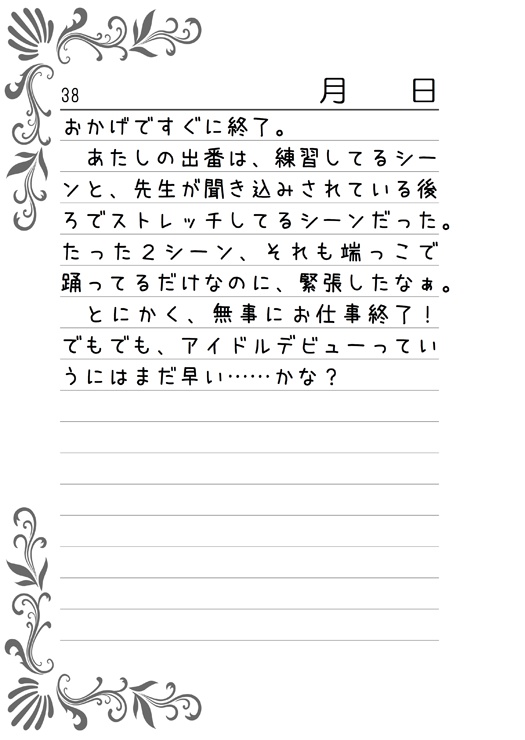 38 月 日
おかげですぐに終了。
　あたしの出番は、練習してるシー
ンと、先生が聞き込みされている後
ろでストレッチしてるシーンだった。
たった２シーン、それも端っこで
踊ってるだけなのに、緊張したなぁ。
　とにかく、無事にお仕事終了！
でもでも、アイドルデビューってい
うにはまだ早い……かな？